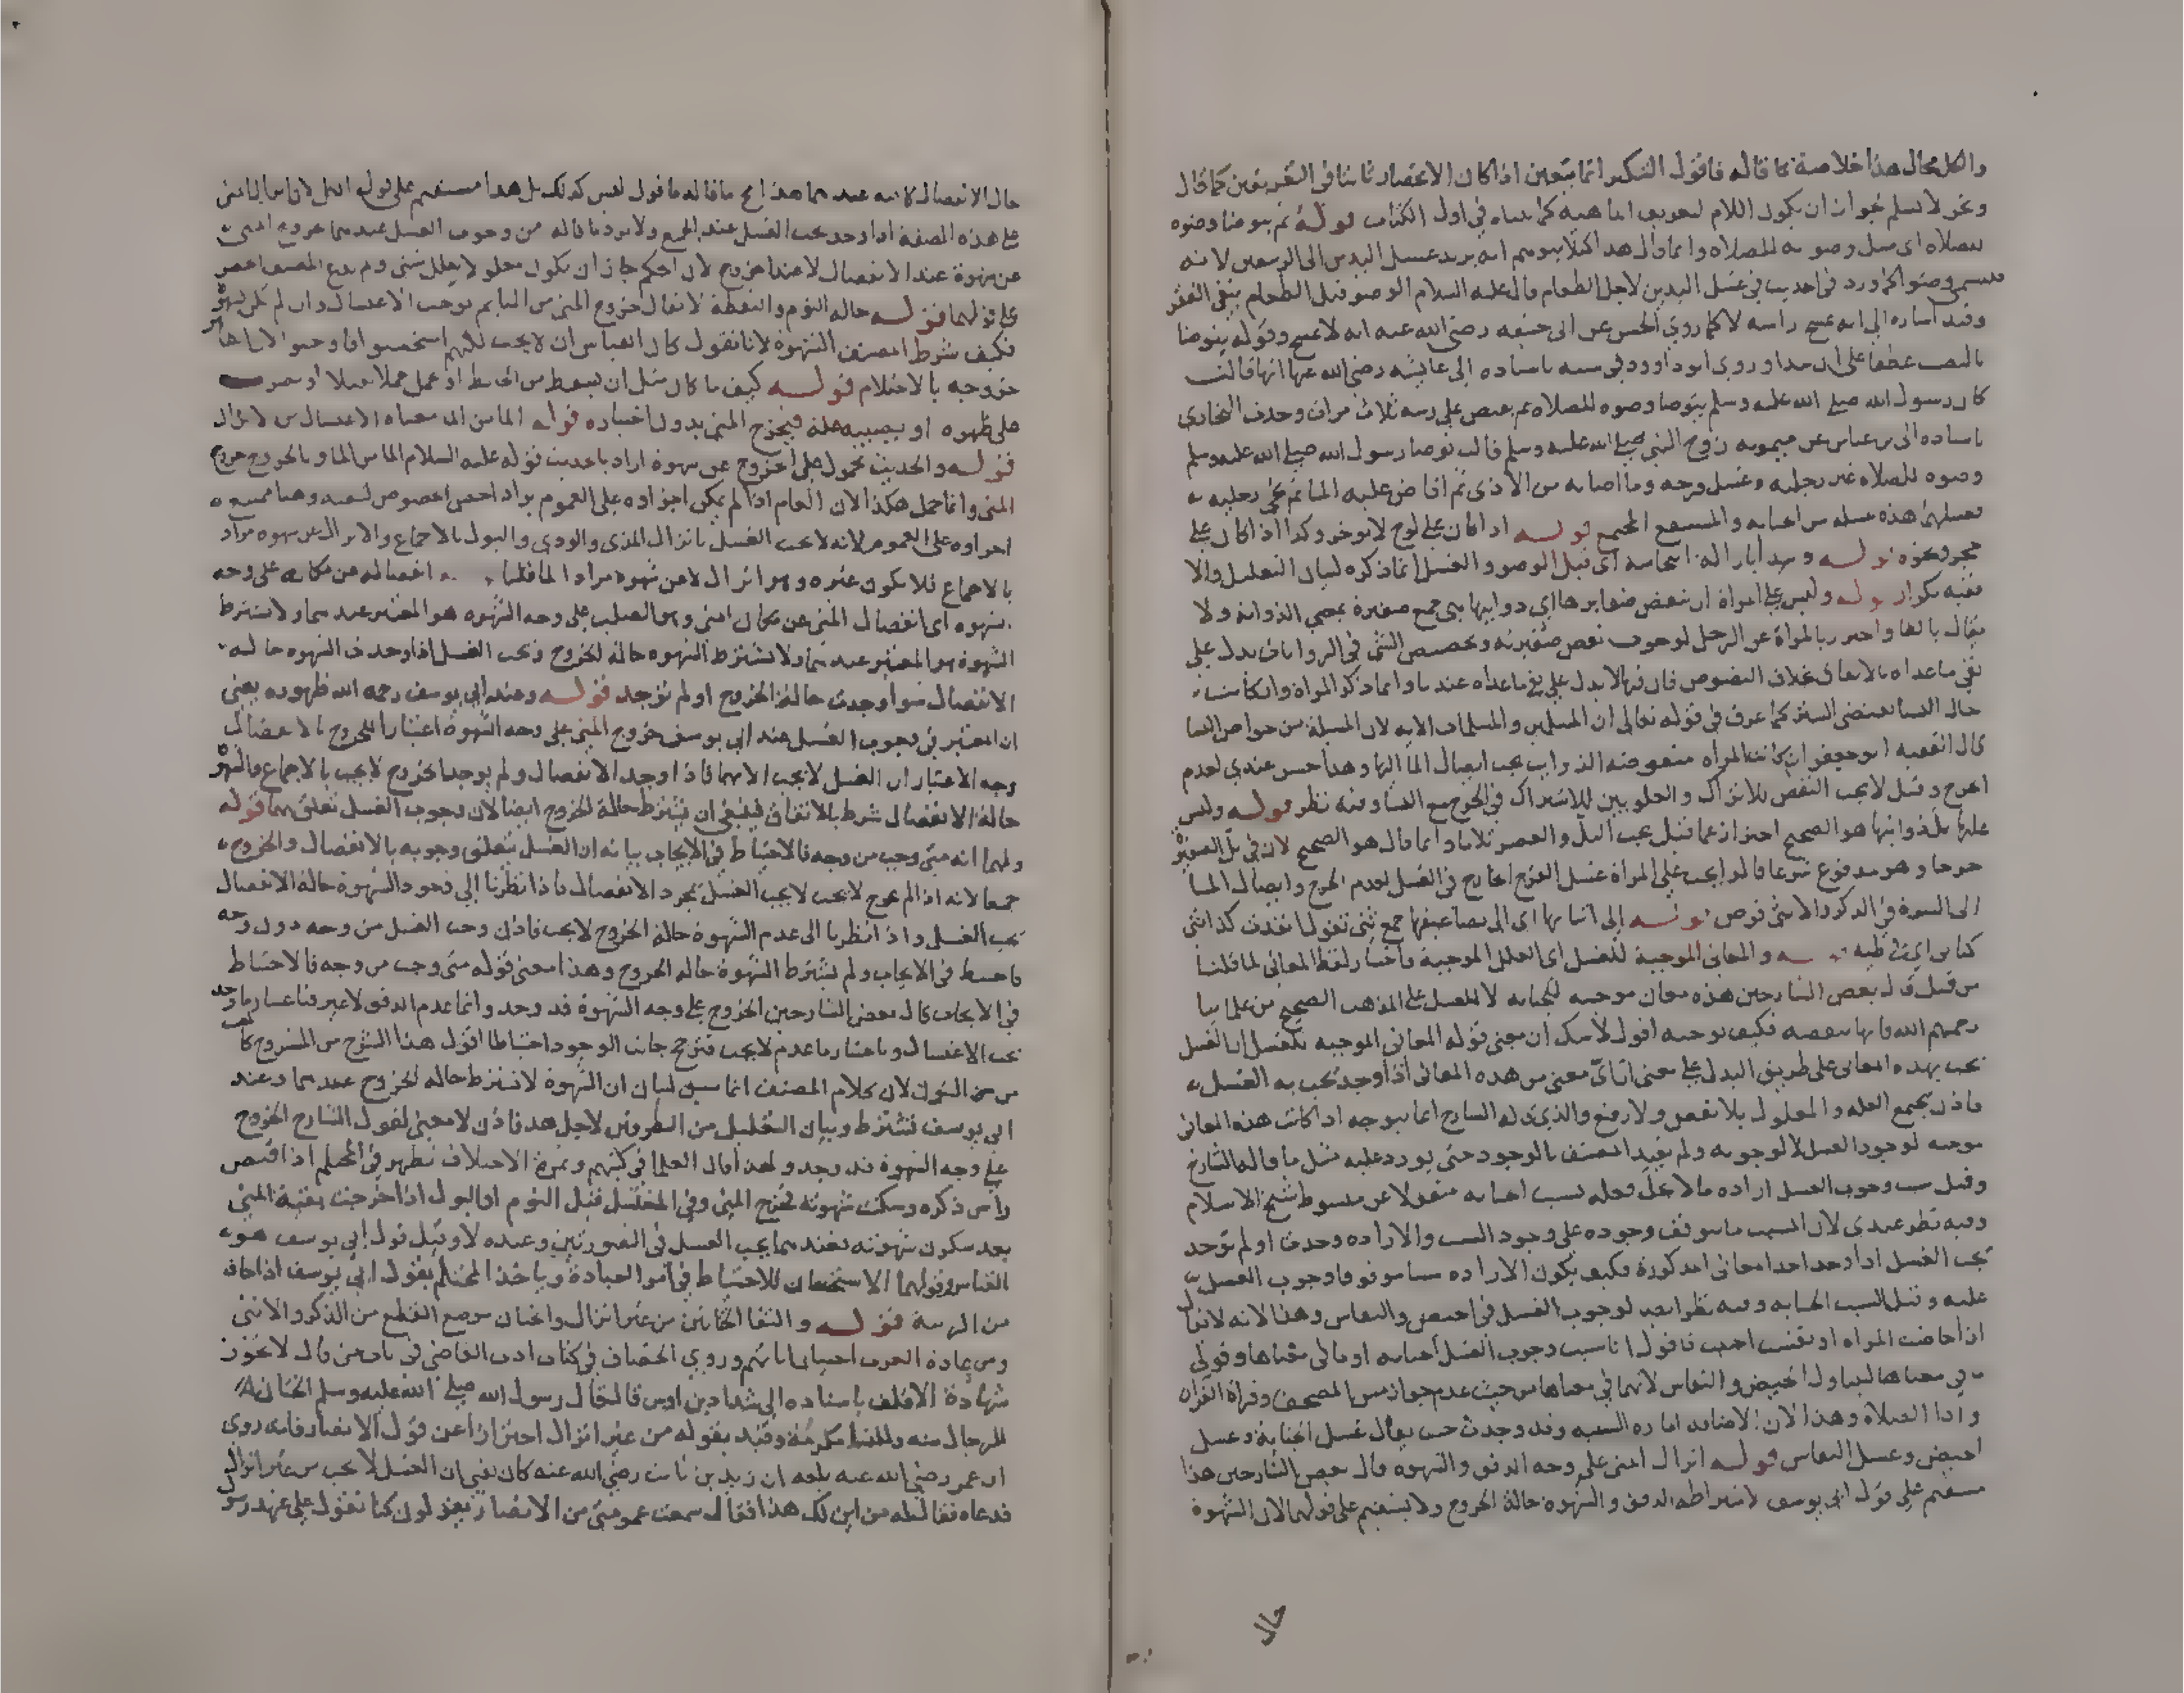 والكل محال هذا خلاصة ما قاله فاقول التكرار انما يتعين اذا كان الاغتصار ثابتا في التعريفين كما قال
ونحن لا نسلم لجواز ان يكون اللام لتعريف الماهية كما بيناه في اول الكتاب قوله ثم يتوضا وضوه
للصلاه اي مثل وضوه للصلاه وانما قال هذا كيلا يتوهم انه يريد غسل اليدين الى الرسغين لانه
يسمى وضوا كما ورد في الحديث في غسل اليدين لاجل الطعام قال عليه السلام الوضو قبل الطعام ينفي الفقر
وفيه اشاره الى انه يمسح راسه لا كما روي الحسن عن ابي حنيفه رضي الله عنه انه لا يمسح وقوله يتوضا
بالنصب عطفا على ان يبدا وروي ابو داوود في سننه باسناده الى عايشه رضي الله عنها انها قالت
كان رسول الله صلى الله عليه وسلم يتوضا وضوه للصلاه ثم يفيض على راسه ثلاث مرات وحدث البخاري
باسناده الى بن عباس عن ميمونه زوج النبي صلى الله عليه وسلم قالت توضا رسول الله صلى الله عليه وسلم
وضوه للصلاه غير رجليه وغسل فرجه وما اصابه من الاذى ثم افاض عليه الما ثم نحى رجليه
فغسلهما هذه غسله من الجنابه والمستنقع المجتمع قوله اذا كان على لوح لا يوخر وكذا اذا كان على
حجر ونحوه قوله ويبدا بازالة النجاسه اي قبل الوضو والغسل انما ذكره لبيان التعليل والا
ففيه تكرار قوله وليس على المراة ان تنقض ضفايرها اي ذوايبها هي جمع ضفيرة بمعنى الذوابه ولا
يقال بالظا واحترز بالمراة عن الرجل لوجوب نقض ضفيرته وتخصيص الشي في الروايات يدل على
نفي ما عداه بالاتفاق بخلاف النصوص فان فيها لا يدل على نفي ما عداه عندنا وانما ذكر المراة وان كانت
حال النسا تقتضي الستر كما عرف في قوله تعالى ان المسلمين والمسلمات الايه لان المسلة من خواص النسا
قال الفقيه ابو جعفر ان كانت المراه منقوضه الذوايب يجب ايصال الما اليها وهذا حسن عندي لعدم
الحرج وقيل لا يجب النقض للاتراك والعلويين للاشتراك في الحرج مع النسا وفيه نظر قوله وليس
عليها بل ذوايبها هو الصحيح احتراز عما قيل يجب البل والعصر ثلاثا وانما قال هو الصحيح لان في بل الضفيرة
حرجا وهو مدفوع شرعا قالوا يجب على المراة غسل الفرج الخارج في الغسل لعدم الحرج وايصال الما
الى السرة في الذكر والانثى فرض قوله الى اثنايها اي الى تضاعيفها جمع ثني تقول انفذت كذا ثني
كتابي اي في طيه قوله والمعاني الموجبة للغسل اي العلل الموجبة واختار لفظ المعاني لما قلنا
من قبل قال بعض الشارحين هذه معان موجبه للجنابه لا للغسل على المذهب الصحيح من علماينا
رحمهم الله فانها تنقضه فكيف توجبه اقول لا شك ان معنى قوله المعاني الموجبه للغسل ان الغسل
يجب بهذه المعاني على طريق البدل على معنى ان اي معنى من هذه المعاني اذا وجد يجب به الغسل
فاذن يجتمع العله والمعلول بلا نقض ولا رفع والذي قاله الشارح انما يتوجه اذا كانت هذه المعاني
موجبه لوجود الغسل لا لوجوبه ولم يقيد المصنف بالوجود حتى يورد عليه مثل ما قاله الشارح
وقيل سبب وجوب الغسل اراده ما لا يحل فعله بسبب الجنابه منقولا عن مبسوط شيخ الاسلام
وفيه نظر عندي لان المسبب ما يتوقف وجوده على وجود السبب والاراده وجدت او لم توجد
يجب الغسل اذا وجد احد المعاني المذكورة فكيف يكون الاراده سببا موقوفا وجوب الغسل
عليه وقيل السبب الجنابه وفيه نظر ايضا لوجوب الغسل في الحيض والنفاس وهذا لانه لا يقال
اذا حاضت المراه او نفست اجنبت فاقول انا سبب وجوب الغسل الجنابه او ما في معناها وقولي
ما في معناها ليتناول الحيض والنفاس لانهما في معناها من حيث عدم جواز مس المصحف وقراة القران
وادا الصلاة وهذا لان الاضافه اماره السببيه وقد وجدت حيث يقال غسل الجنابة وغسل
الحيض وغسل النفاس قوله انزال المني على وجه الدفق والشهوه قال بعض الشارحين هذا
مستقيم على قول ابي يوسف لاشتراطه الدفق والشهوه حالة الخروج ولا يستقيم على قولهما لان الشهوة
حال
حال الانفصال كافيه عندهما هذا مح ما قاله فاقول ليس كذلك بل هذا مستقيم على قول الكل لان
على هذه الصفة اذا وجد يجب الغسل عند الجميع ولا يرد ما قاله من وجوب الغسل عندهما بخروج المني
عن شهوة عند الانفصال لا عند الخروج لان الحكم جاز ان يكون معلولا بعلل شتى ولم يدع المصنف الحصر
على قولهما قوله حالة النوم واليقظة لا يقال خروج المني من النايم يوجب الاغتسال وان لم يكن بشهوة
فكيف شرط المصنف الشهوة لانا نقول كان القياس ان لا يجب لكنهم استحسنوا
خروجه بالاحتلام قوله كيف ما كان مثل ان يسقط من الحايط او عمل حملا ثقيلا او ضرب
على ظهره او يصيبه علة فيخرج المني بدون اختياره قوله الما من الما معناه الاغتسال من الانزال
قوله والحديث محمول على الخروج عن شهوة اراد بالحديث قوله عليه السلام الما من الما وبالخروج خروج
المني وانما حمل هكذا لان العام اذا لم يمكن اجراوه على العموم يراد اخص الخصوص لتعينه وهنا يمتنع
اجراوه على العموم لانه لا يجب الغسل بانزال المذي والودي والبول بالاجماع والانزال عن شهوه مراد
بالاجماع فلا يكون غيره وهو انزال لا عن شهوه مرادا لما قلنا قوله انفصاله عن مكانه على وجه
الشهوه اي انفصال المني عن مكان المني وهو الصلب على وجه الشهوه هو المعتبر عندهما ولا يشترط
الشهوة هو المعتبر عندهما ولا يشترط الشهوه حالة الخروج ويجب الغسل اذا وجدت الشهوه حالة
الانفصال سوا وجدت حالة الخروج او لم توجد قوله وعند ابي يوسف رحمه الله ظهوره يعني
ان المعتبر في وجوب الغسل عند ابي يوسف خروج المني على وجه الشهوة اعتبارا للخروج بالانفصال
وجه الاعتبار ان الغسل لا يجب الا بهما فاذا وجد الانفصال ولم يوجد الخروج لا يجب بالاجماع والشهوة
حالة الانفصال شرط بالاتفاق فينبغي ان يشترط حالة الخروج ايضا لان وجوب الغسل تعلق بهما قوله
ولهما انه متى وجب من وجه فالاحتياط في الايجاب بيانه ان الغسل يتعلق وجوبه بالانفصال والخروج
جميعا لانه اذا لم يخرج لا يجب لا يجب الغسل بمجرد الانفصال فاذا نظرنا الى وجود الشهوة حالة الانفصال
يجب الغسل واذا نظرنا الى عدم الشهوة حالة الخروج لا يجب فاذن وجب الغسل من وجه دون وجه
فاحتيط في الايجاب ولم يشترط الشهوة حاله الخروج وهذا معنى قوله متى وجب من وجه فالاحتياط
في الايجاب قال بعض الشارحين الخروج على وجه الشهوة قد وجد وانما عدم الدفق لا غير فباعتبار ما وجد
يجب الاغتسال وباعتبار ما عدم لا يجب فترجح جانب الوجود احتياطا اقول هذا الشرح من المشروح كما
لان كلام المصنف انما سيق لبيان ان الشهوة لا تشترط حاله الخروج عندهما وعند
ابي يوسف تشترط وبيان التعليل من الطرفين لاجل هذا فاذن لا معنى لقول الشارح الخروج
على وجه الشهوة قد وجد ولهذا قال العلما في كتبهم وثمرة الاختلاف تظهر في المحتلم اذا قبض
راس ذكره وسكنت شهوته فخرج المني وفي المغتسل قبل النوم او البول اذا خرجت بقية المني
بعد سكون شهوته فعندهما يجب الغسل في الصورتين وعنده لا وقيل قول ابي يوسف هو
القياس وقولهما الاستحسان للاحتياط في امر العبادة وياخذ المحتلم بقول ابي يوسف اذا خاف
من الريبة قوله والتقا الختانين من غير انزال والختان موضع القطع من الذكر والانثى
ومن عادة العرب اختتان وروي الخصاف في كتاب ادب القاضي في باب من قال لا تجوز
شهادة الاقلف باسناده الى شداد بن اوس قال قال رسول الله صلى الله عليه وسلم الختان
للرجال سنه وللنسا مكرمة وقيد بقوله من غير انزال احترازا عن قول الانصار فانه روى
ان عمر رضي الله عنه بلغه ان زيد بن ثابت رضي الله عنه كان يفتي ان الغسل لا يجب من غير انزال
فدعاه فقال له من اين لك هذا فقال سمعت عمومتي من الانصار يقولون كنا نقول على عهد رسول